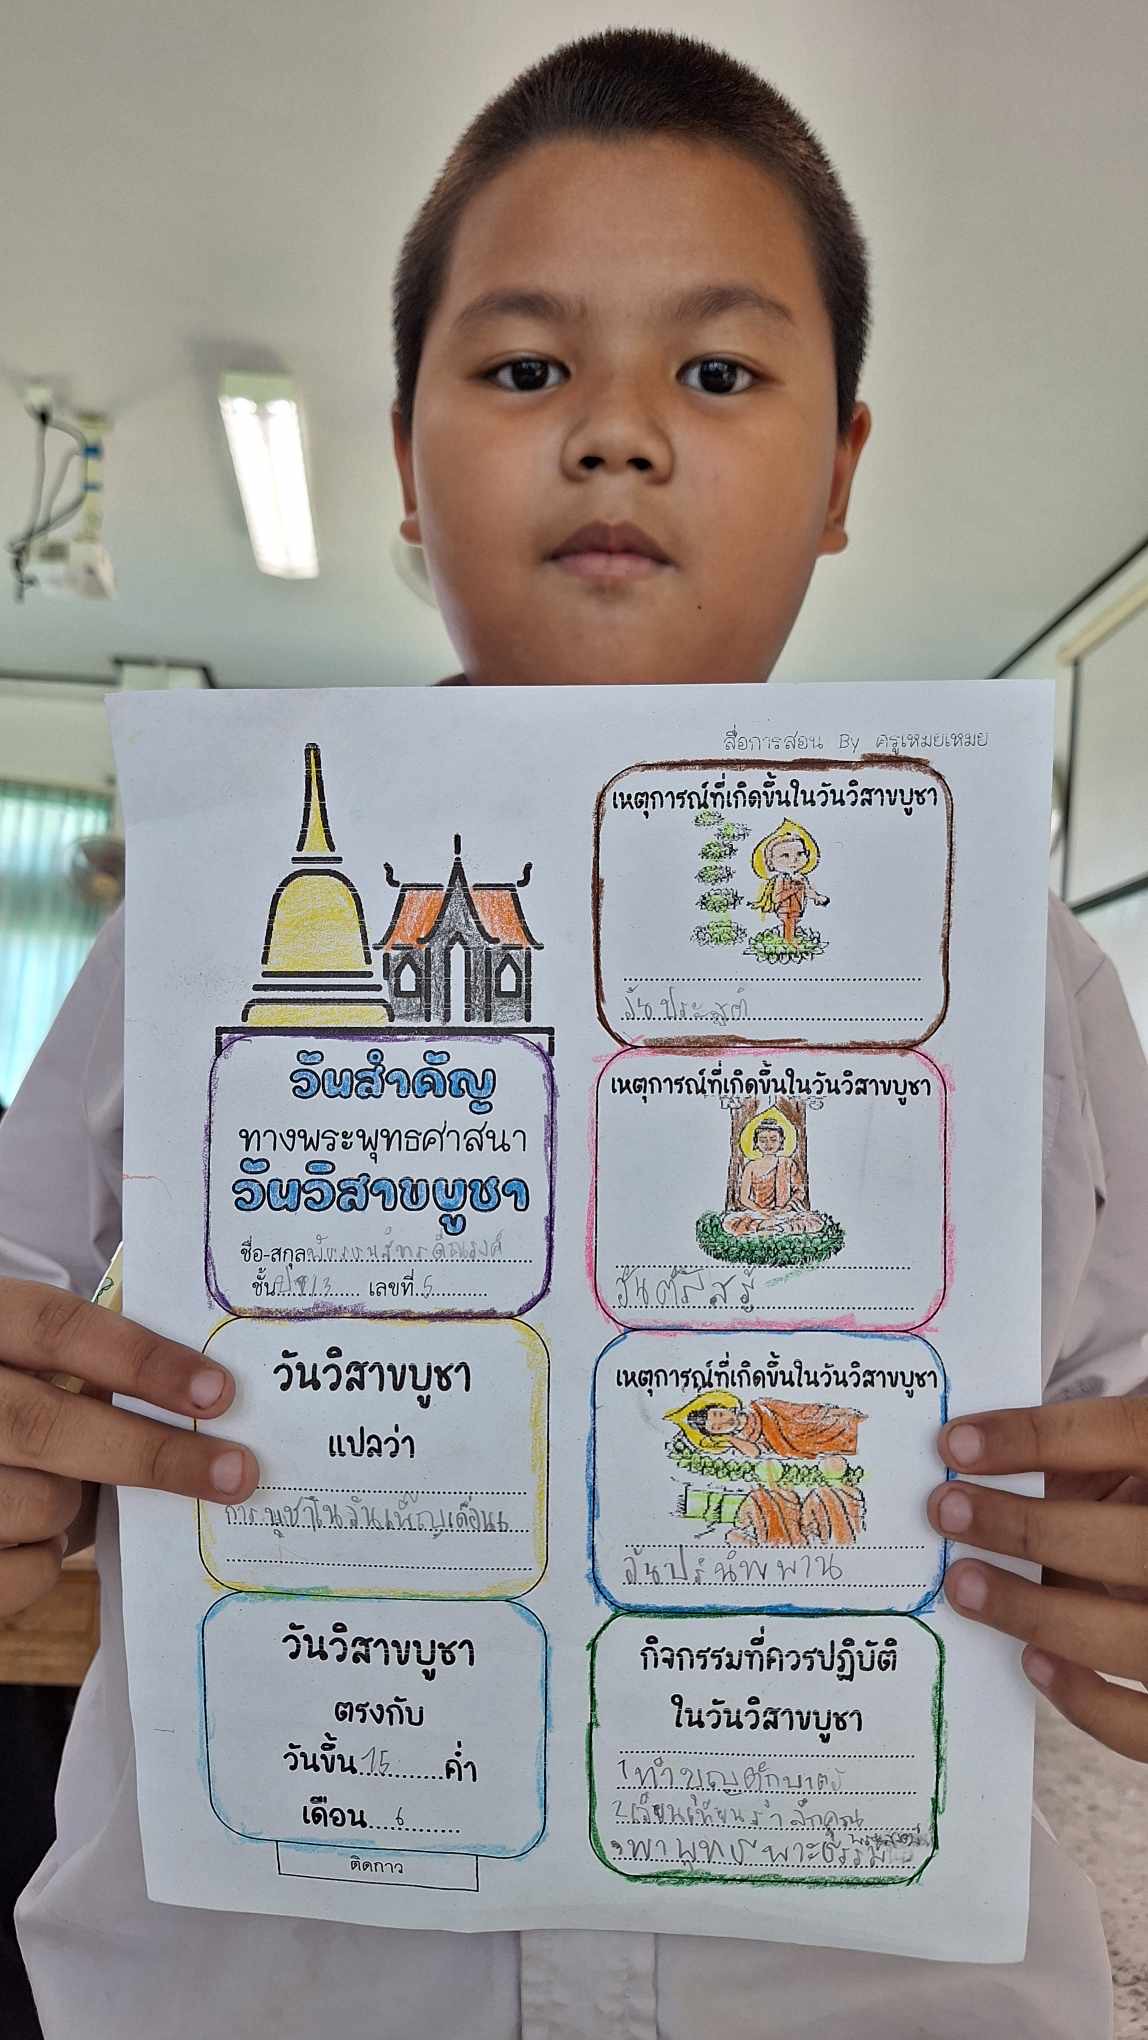 สื่อการสอน By ครูเหมยเหมย
วันสำคัญ
ทางพระพุทธศาสนา
วันวิสาขบูชา
ชื่อ-สกุล
ชั้น เลขที่ 5
วันวิสาขบูชา
แปลว่า
การบุชาในวันเพ็ญเดือน6
วันวิสาขบูชา
ตรงกับ
วันขึ้น 15 ค่ำ
เดือน 6
ติดกาว
เหตุการณ์ที่เกิดขึ้นในวันวิสาขบูชา
วันประสูต
เหตุการณ์ที่เกิดขึ้นในวันวิสาขบูชา
วันตรัสรู้
เหตุการณ์ที่เกิดขึ้นในวันวิสาขบูชา
วันปรนิพพาน
กิจกรรมที่ควรปฏิบัติ
ในวันวิสาขบูชา
1 ทำบุญตักบาตร
2 เวียนเทียนรำลึกคุณ